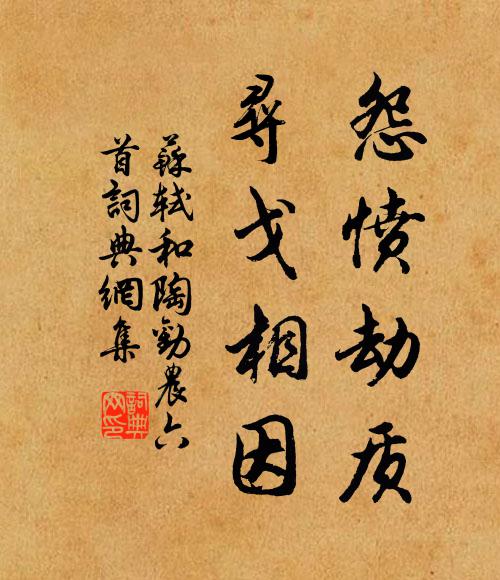 怨憤劫质
尋戈相因
蘇軾和陶勸農六
首詞典網集
詞典
网印